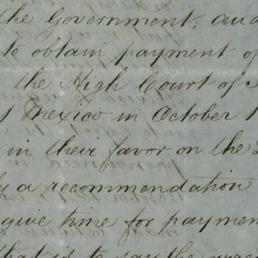 the Government, and
to obtain payment of
the High Court of
Mexico in October 1
in their favor on the
a recommendation
give time for paymen
that is to say the